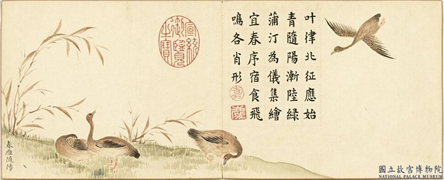 叶律北征應始
青隨陽漸陸緑
蒲汀為儀集繪
宜春序宿食飛
鳴各肖形
宣統御覽之寶
春雁隨陽
國立故宮博物院
NATIONAL PALACE MUSEUM